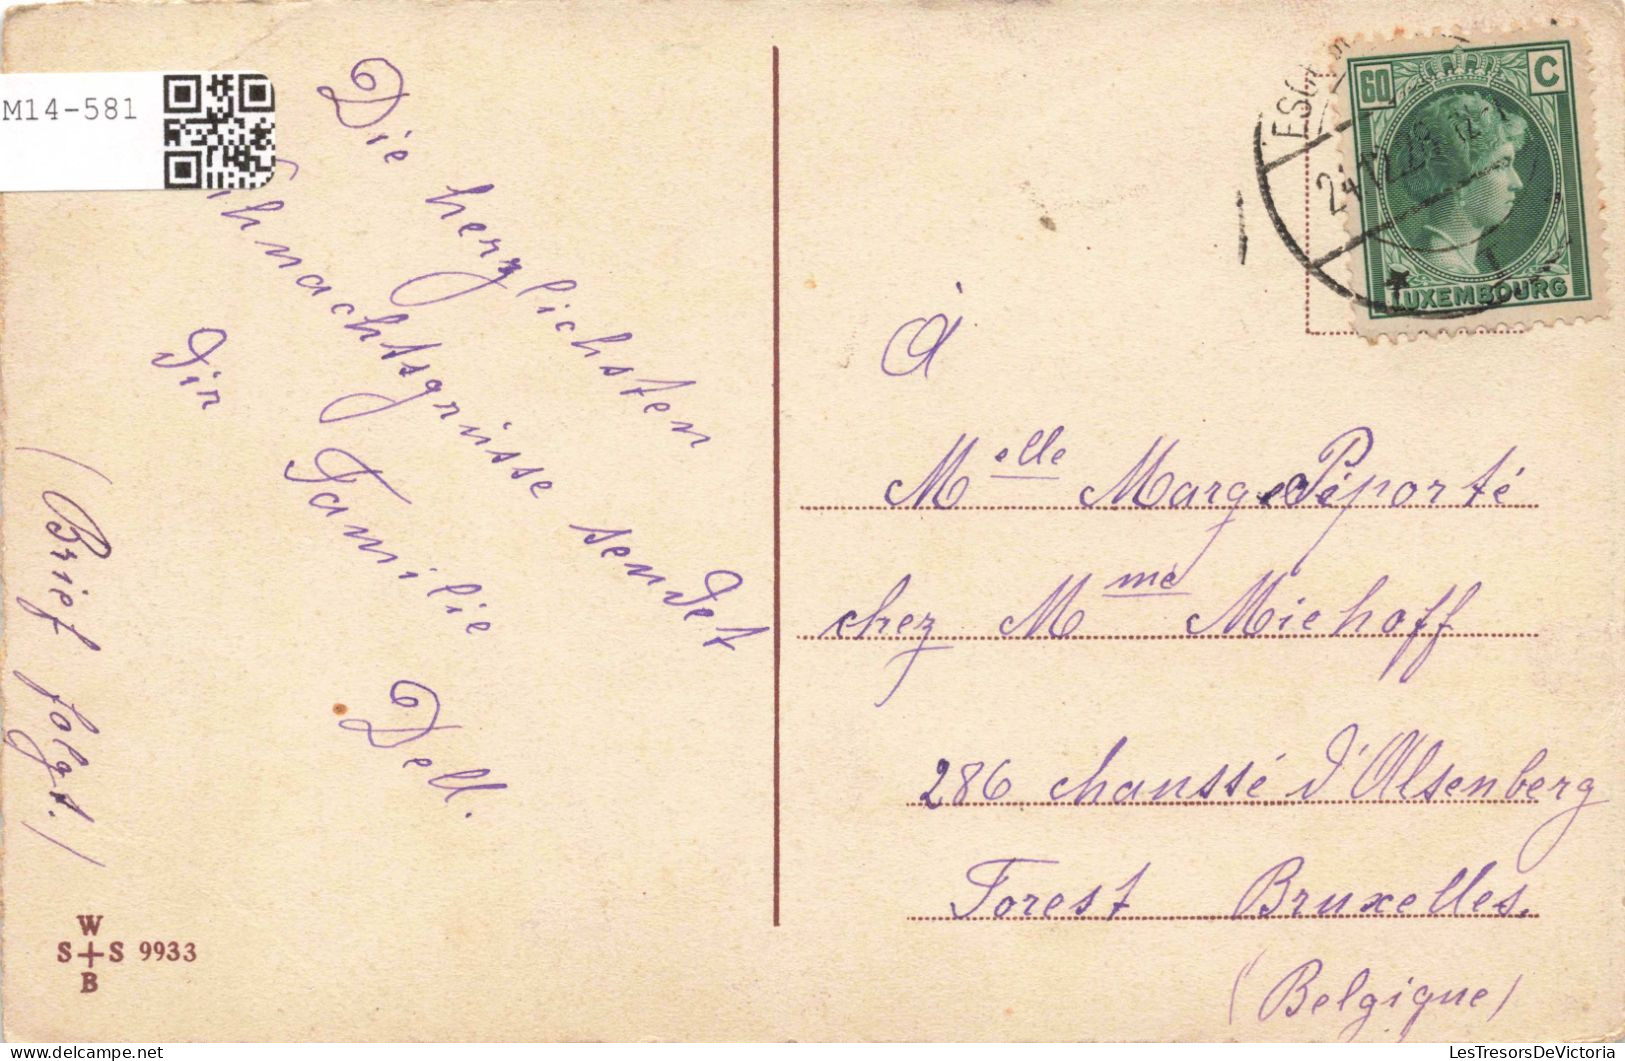 M14-581
Die herzlichsten
ihnachtsgrüsse sendet
Dir Familie
Dell.
(Brief folgt.)
W
S+S 9933
B
60 C
LUXEMBOURG
24.12.29
À
Melle Marg. Péporté
chez Mme Miehoff
286 chaussé d'Alsenberg
Forest Bruxelles.
(Belgique)
LesTresorsDeVictoria